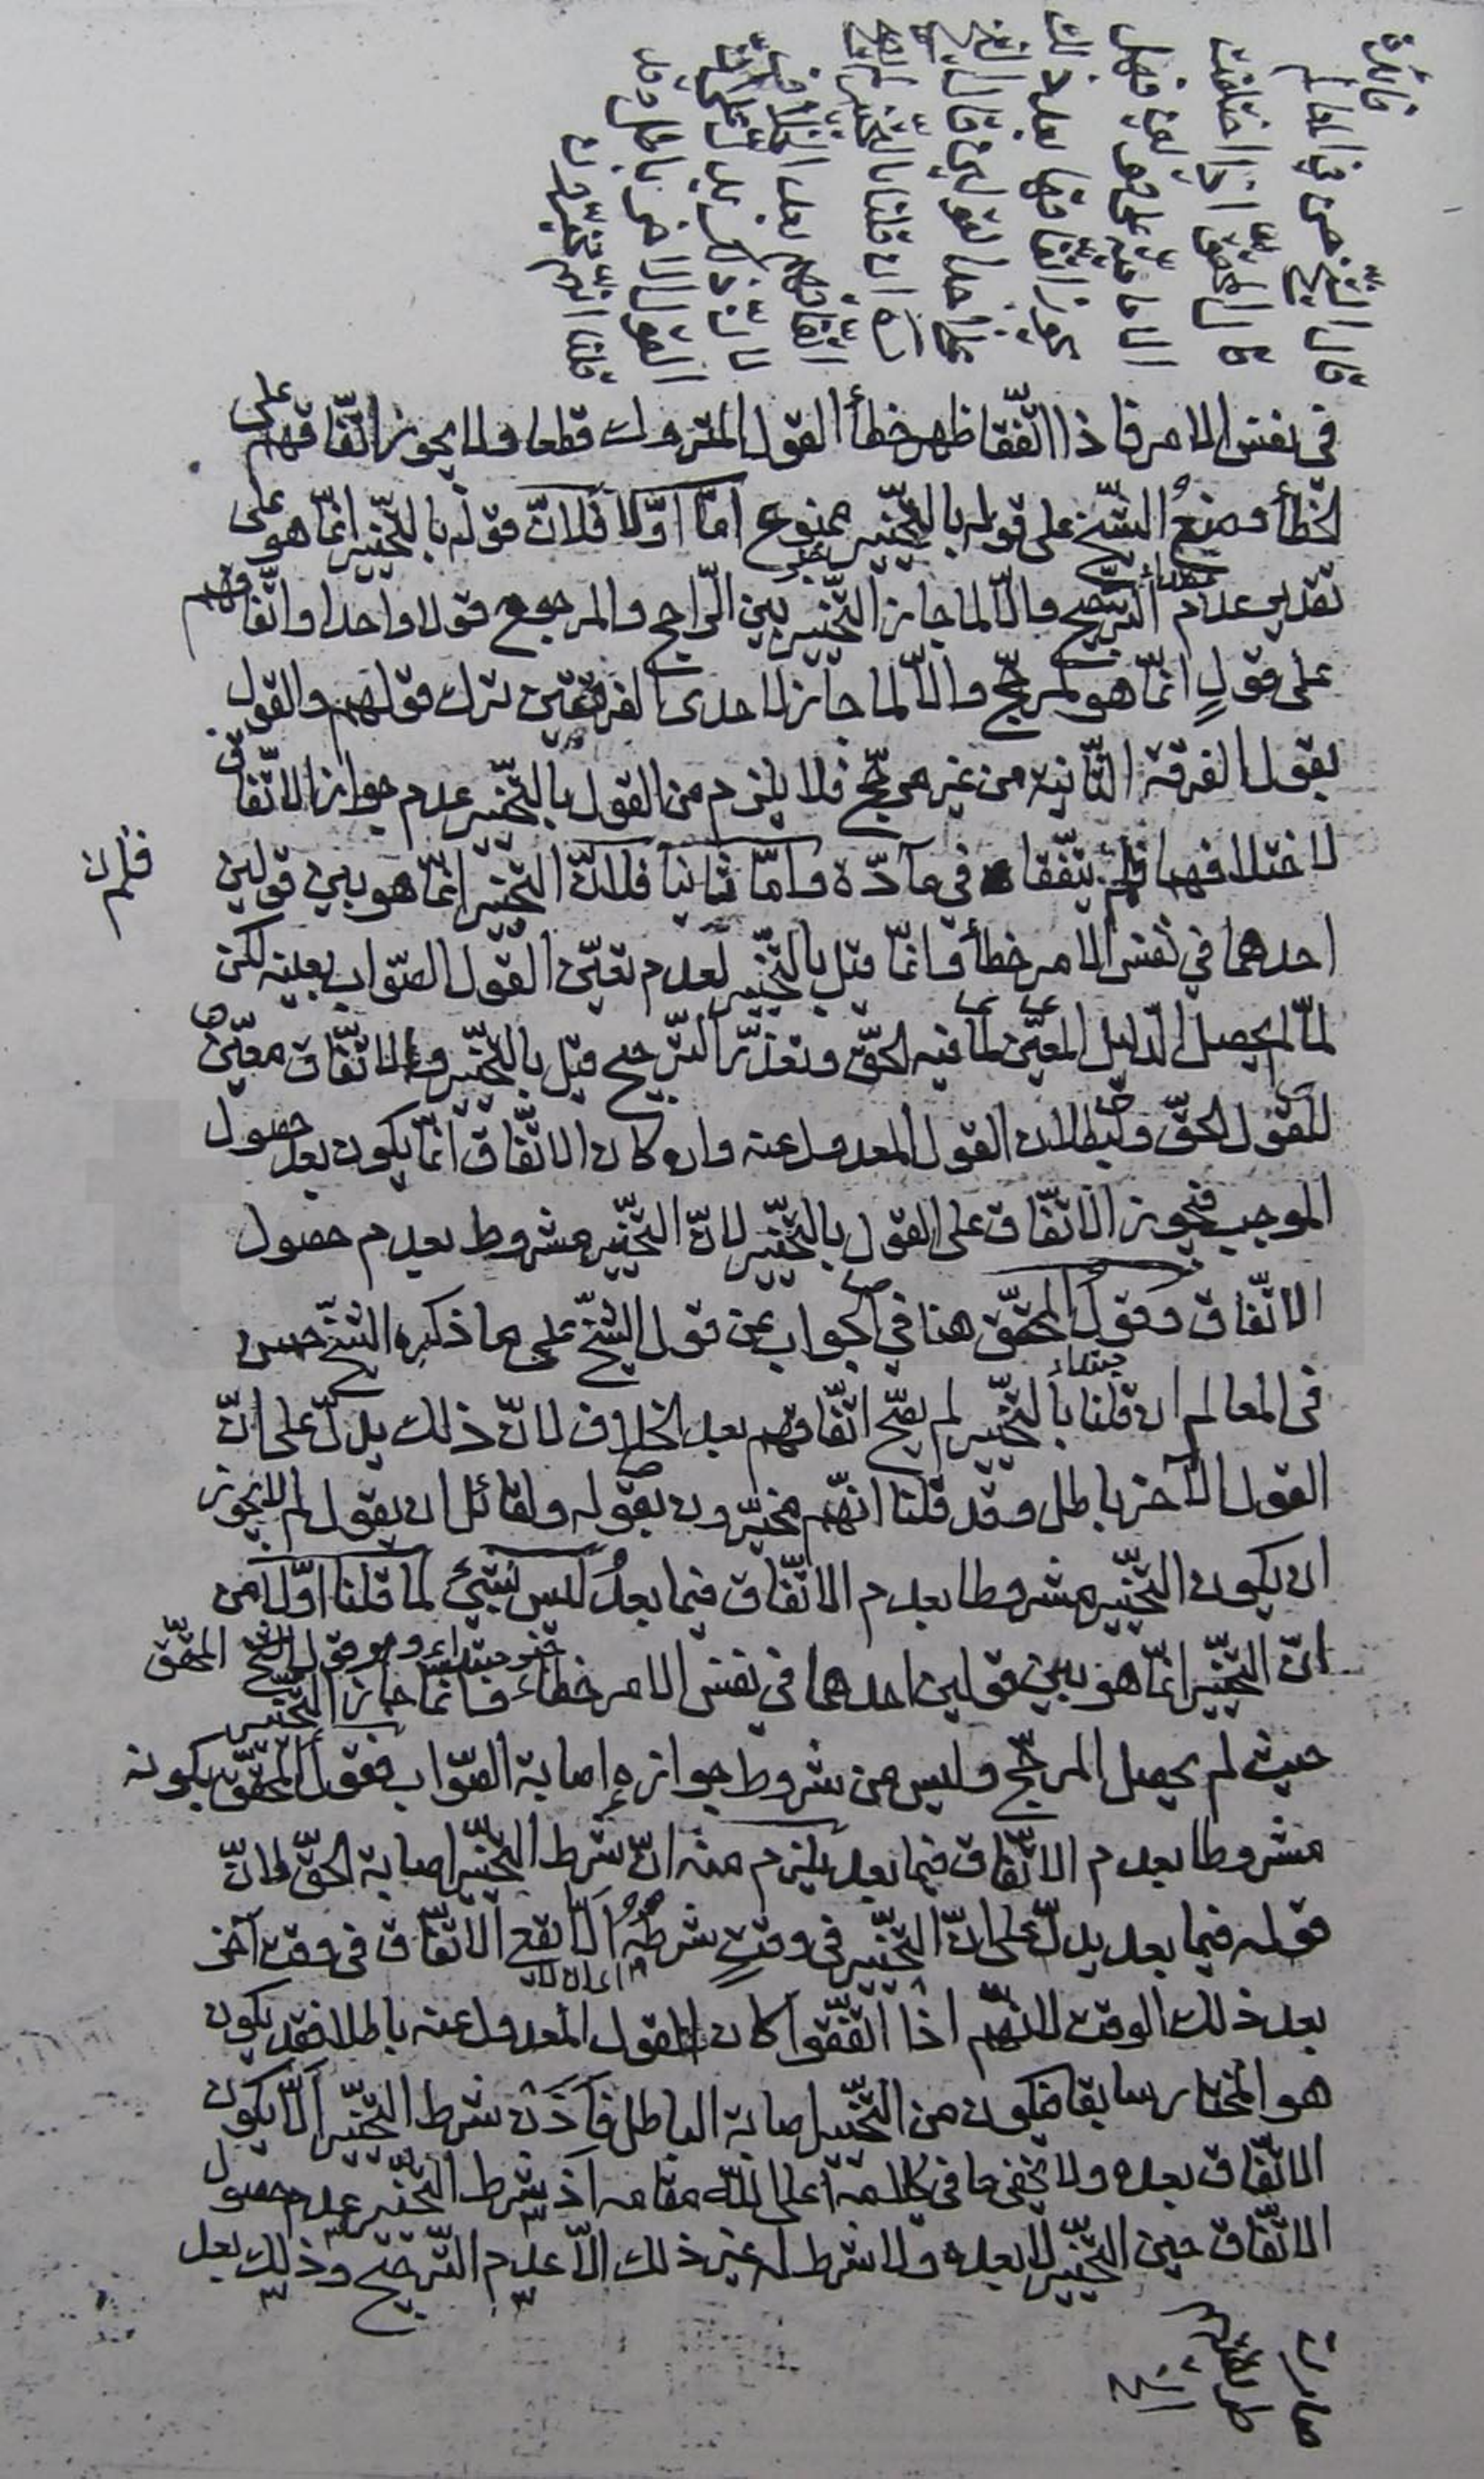 فائدة
قال الشيخ حسن في المعالم
قال المحقق ره اذا اختلفت
الامامية على قولين فهل
يجوز اتفاقها بعد ذلك
على احد القولين قال الشيخ
ره ان قلنا بالتخيير لم يصح
اتفاقهم بعد الخلاف
لانّ ذلك يدل على انّ
القول الاخر باطل وقد
قلنا انّهم مخيّرون
في نفس الامر فاذا اتّفقا ظهر خطأ القول المتروك قطعا ولا يجوز اتّفاقهم على
الخطأ ومنعُ الشيّخ على قوله بالتّخيير ممنوع امّا اوّلا فلانّ قوله بالتّخيير انّما هو على
تقدير عدم التّرجيح والّا لما جاز التّخيير بين الرّاجح والمرجوح قولا واحدا واتّفاقهم
على قولٍ انّما هو لمرجّح والّا لما جاز لاحدى الفرقتين ترك قولهم والقول
بقول الفرقة الثّانية من غير مرجّح فلا يلزم من القول بالتّخيير عدم جواز الاتّفاق
لاختلافهما فلم يتّفقا في مادّة وامّا ثانيا فلانّ التّخيير انّما هو بين قولين
فلان
احدهما في نفس الامر خطأ وانّما قيل بالتّخيير لعدم تعيّن القول الصّواب بعينه لكن
لمّا لم يحصل الدّليل المعيّن لما فيه الحقّ وتعذّر التّرجيح قيل بالتّخيير والاتّفاق معيّن
للقول الحقّ ولبطلان القول المعدول عنه وان كان الاتّفاق انّما يكون بعد حصول
الموجب فيجوز الاتّفاق على القول بالتّخيير لانّ التّخيير مشروط بعدم حصول
الاتّفاق وقول المحقّق هنا في الجواب عن قول الشيّخ على ما ذكره الشيّخ حسن
في المعالم ان قلنا بالتّخيير لم يصّح اتّفاقهم بعد الخلاف لانّ ذلك يدلّ على انّ
القول الآخر باطل وقد قلنا انّهم مخيّرون بقوله ولقائل ان يقول لم لا يجوز
ان يكون التّخيير مشروطا بعدم الاتّفاق فيما بعدُ ليس بشيئ لما قلنا اوّلا من
انّ التّخيير انّما هو بين قولين احدهما في نفس الامر خطاء وانّما جاز التّخيير
حيث لم يحصل المرجّح وليس من شروط جوازه اصابة الصّواب فقول المحقّق بكونه
مشروطا بعدم الاتّفاق فيما بعد يلزم منه انّ شرط التّخيير اصابة الحقّ لانّ
قوله فيما بعد يدلّ على انّ التّخيير في وقتٍ شرطُهُ الّا يقع الاتّفاق في وقت آخر
بعد ذلك الوقت لانّهم اذا اتّفقوا كان القول المعدول عنه باطلا فقد يكون
هو المختار سابقا فيكون من التّخيير اصابة الباطل فاذن شرط التّخيير الّا يكون
الاتّفاق بعده ولا يخفى ما في كلامه اعلى اللّه مقامه اذ شرط التّخيير عدم حصول
الاتّفاق حين التّخيير لا بعده ولا شرط له غير ذلك الّا عدم التّرجيح وذلك بعد